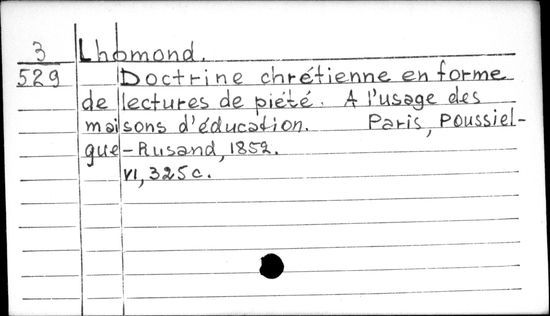 3 Lhomond.
529 Doctrine chrétienne en forme
de lectures de piété. A l'usage des
maisons d'éducation. Paris, Poussiel-
gue-Rusand, 1852.
VI, 325 c.